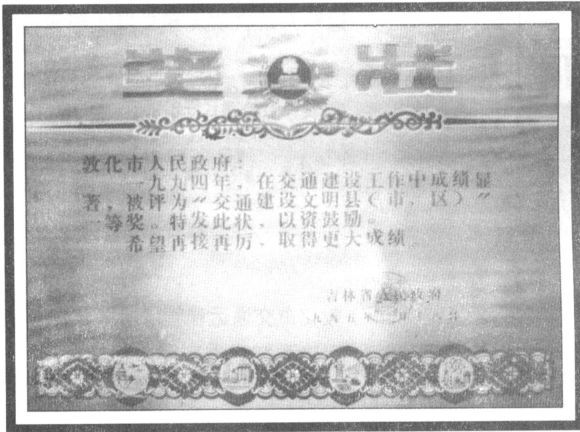 奖状
敦化市人民政府：
一九九四年，在交通建设工作中成绩显
著，被评为“交通建设文明县（市、区）”
一等奖。特发此状，以资鼓励。
希望再接再厉、取得更大成绩
吉林省人民政府
一九九五年